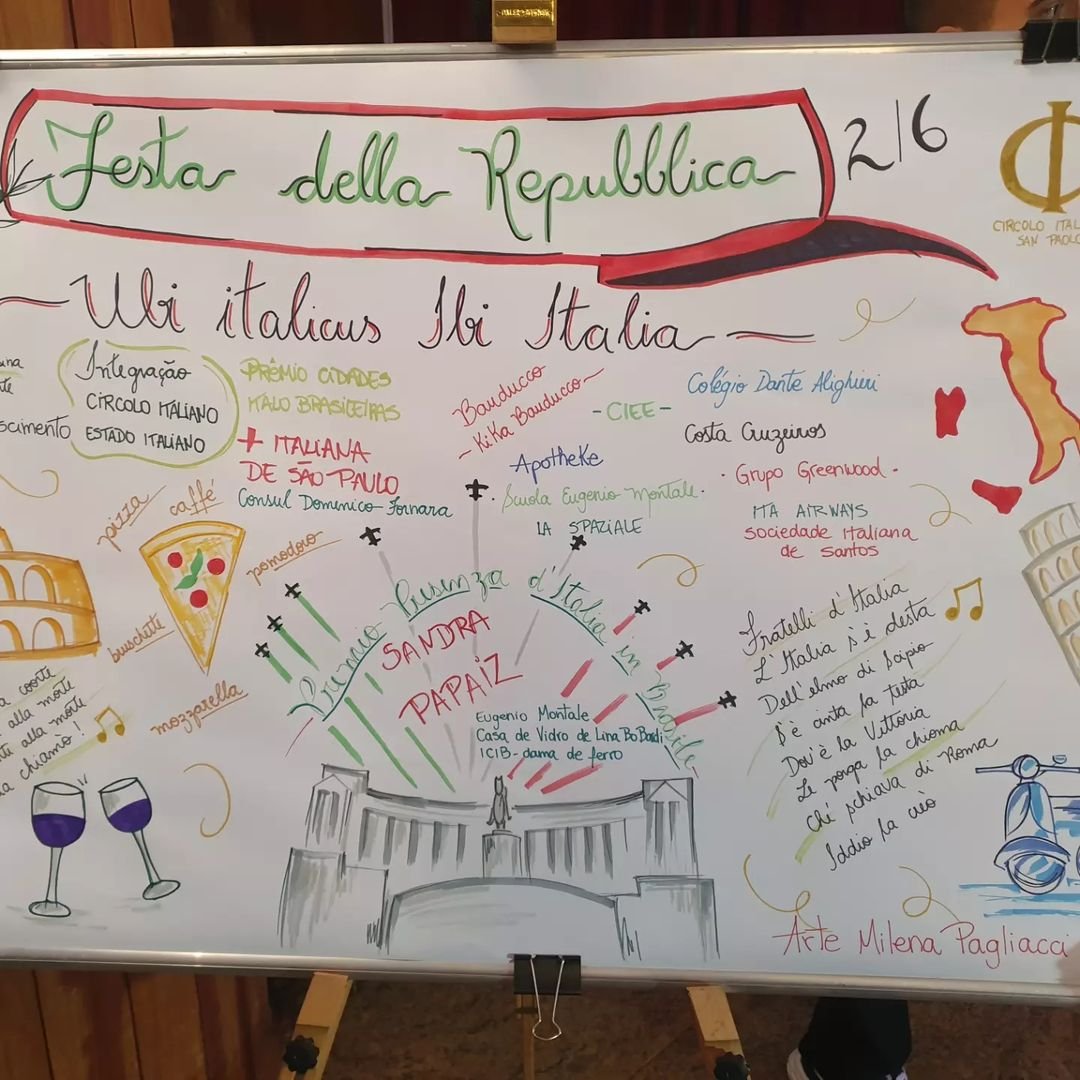 Festa della Repubblica
2/6
CIRCOLO ITAL
SAN PAOLO
Ubi italicus Ibi Italia
Integração
CÍRCOLO ITALIANO
ESTADO ITALIANO
scimento
PRÊMIO CIDADES
ITALO BRASILEIRAS
+ ITALIANA
DE SÃO PAULO
Consul Domenico Fornara
Bauducco
KiKa Bauducco
- CIEE -
Apotheke
Scuola Eugenio Montale
LA SPAZIALE
Colégio Dante Alighieri
Costa Cruzeiros
Grupo Greenwood
ITA AIRWAYS
sociedade italiana
de Santos
pizza
caffé
pomodoro
buschette
mozzarella
Premio Presenza d'Italia in Brasile
SANDRA
PAPAIZ
Eugenio Montale
Casa de Vidro de Lina Bo Bardi
ICIB - dama de ferro
a coorte
alla morte
ti alla morte
a chiamo!
Fratelli d'Italia
L'Italia s'è desta
Dell'elmo di Scipio
S'è cinta la testa
Dov'è la Vittoria
Le porga la chioma
Ché schiava di Roma
Iddio la creò
Arte Milena Pagliacci